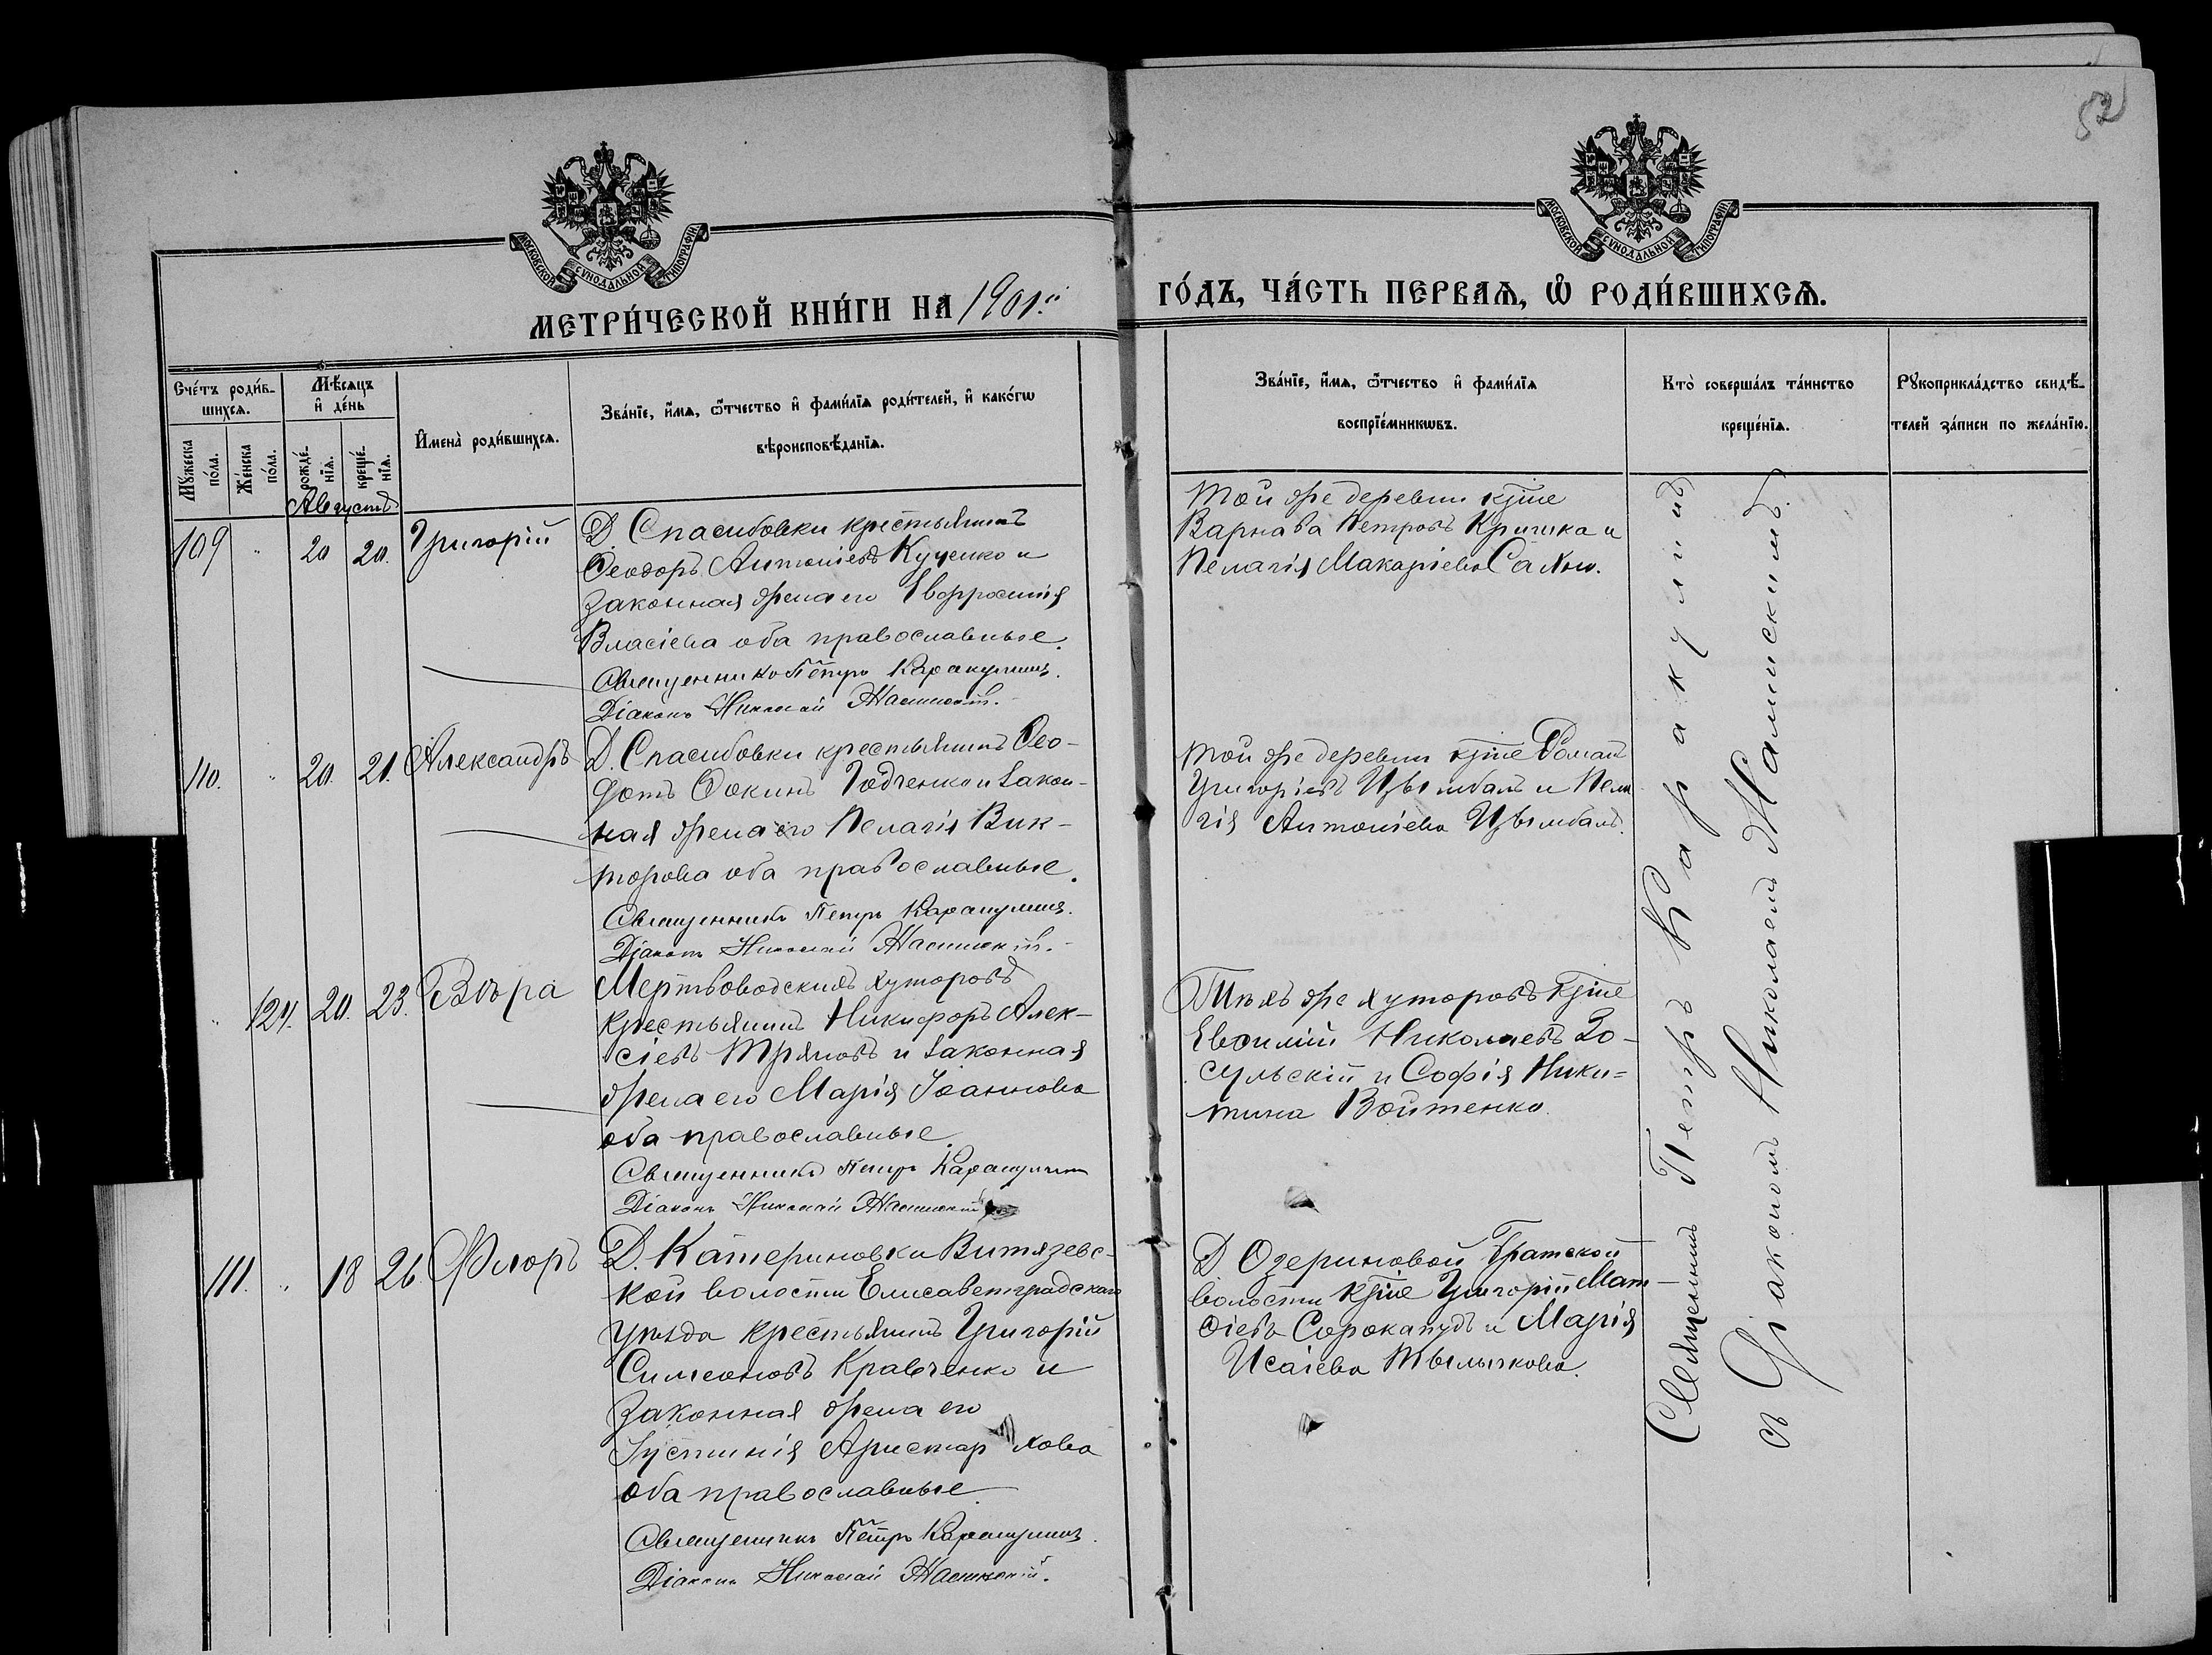 52
МОСКОВСКОЙ СѴНОДАЛЬНОЙ ТИПОГРАФІИ
МОСКОВСКОЙ СѴНОДАЛЬНОЙ ТИПОГРАФІИ
МЕТРИ́ЧЕСКОЙ КНИ́ГИ НА 1901й
ГО́ДЪ, ЧА́СТЬ ПЕРВАѦ, Ѡ РОДИ́ВШИХСѦ.
Сче́тъ роди́в-
шихсѧ.
Мѣ́сѧцъ
и де́нь
Мꙋ́жеска
по́ла.
Же́нска
по́ла.
рожде́-
нїѧ.
креще́-
нїѧ.
Имена̀ роди́вшихсѧ.
Зва́нїе, и́мѧ, ѻ҆́тчество и фами́лїѧ роди́телей, и како́гѡ
вѣроисповѣ́данїѧ.
Зва́нїе, и́мѧ, ѻ҆́тчество и фами́лїѧ
воспрїе́мникѡвъ.
Кто̀ соверша́лъ та́инство
креще́нїѧ.
Рꙋкоприкла́дство свидѣ́-
телей за́писи по жела́нїю.
Августъ
109 " 20 20. Григорій
Д. Спасибовки крестьянинъ
Ѳеодоръ Антоніевъ Куценко и
законная жена его Евфросинія
Власіева оба православные.
Священникъ Петръ Каракулинъ.
Діаконъ Николай
Той же деревни кр̃не
Варнава Петровъ Кришка и
Пелагія Макаріева
110. " 20. 21. Александръ
Д. Спасибовки крестьянинъ Ѳео-
дотъ Ѳокинъ Годченко и закон-
ная жена его Пелагія Вик-
торова оба православные.
Священникъ Петръ Каракулинъ.
Діаконъ Николай
Той же деревни кр̃не Романъ
Григоріевъ Цвымбалъ и Пела
гія Антоніева Цвымбалъ.
" 124. 20. 23. Вѣра
Мертвоводскихъ хуторовъ
крестьянинъ Никифоръ Алек-
сіевъ Тряновъ и законная
жена его Марія Іоаннова
оба православные.
Священникъ Петръ Каракулинъ
Діаконъ Николай
Тѣхъ же хуторовъ кр̃не
Евѳимій Николаевъ Зо-
сульскій и Софія Ники-
тина Войтенко.
111. " 18 26 Флоръ
Д. Катериновки Витязевс-
кой волости Елисаветградскаго
уѣзда крестьянинъ Григорій
Симеоновъ Кравченко и
законная жена его
Іустинія Аристархова
оба православные
Священникъ Петръ Каракулинъ.
Діаконъ Николай
Д Озериновой Братской
волости кр̃не Григорій Мат-
ѳіевъ Сорокапудъ и Марія
Исаіева
Священникъ Петръ Каракулинъ
съ Діакономъ Николаемъ